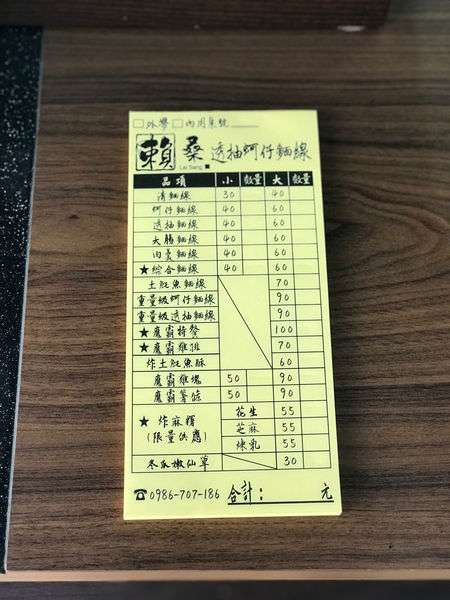 □外帶 □內用桌號____
賴桑 透抽蚵仔麵線
Lai Sang
品項 小 數量 大 數量
清麵線 30 40
蚵仔麵線 40 60
透抽麵線 40 60
大腸麵線 40 60
肉羹麵線 40 60
★綜合麵線 40 60
土魠魚麵線 70
重量級蚵仔麵線 90
重量級透抽麵線 90
★魔霸特餐 100
★魔霸雞排 70
炸土魠魚酥 60
魔霸雞塊 50 90
魔霸薯條 50 90
★炸麻糬 花生 55
(限量供應) 芝麻 55
煉乳 55
冬瓜嫩仙草 30
☎0986-707-186 合計: 元